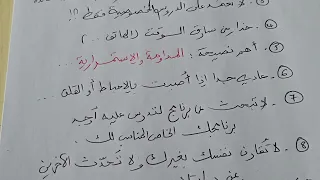 لا تعتمد على الدروس الخصوصية فقط !!
حذارِ من سارق الوقت (الهاتف ..)
④ أهم نصيحة : المداومة والاستمرارية .
⑥ عادي جدا إذا أُصبت بالإحباط أو القلق ...
⑦ لا تبحث عن برنامج لتدرس عليه أوجد
برنامجك الخاص المناسب لك .
⑧ لا تُقارن نفسك بغيرك ولا تُحدّث الآخرين